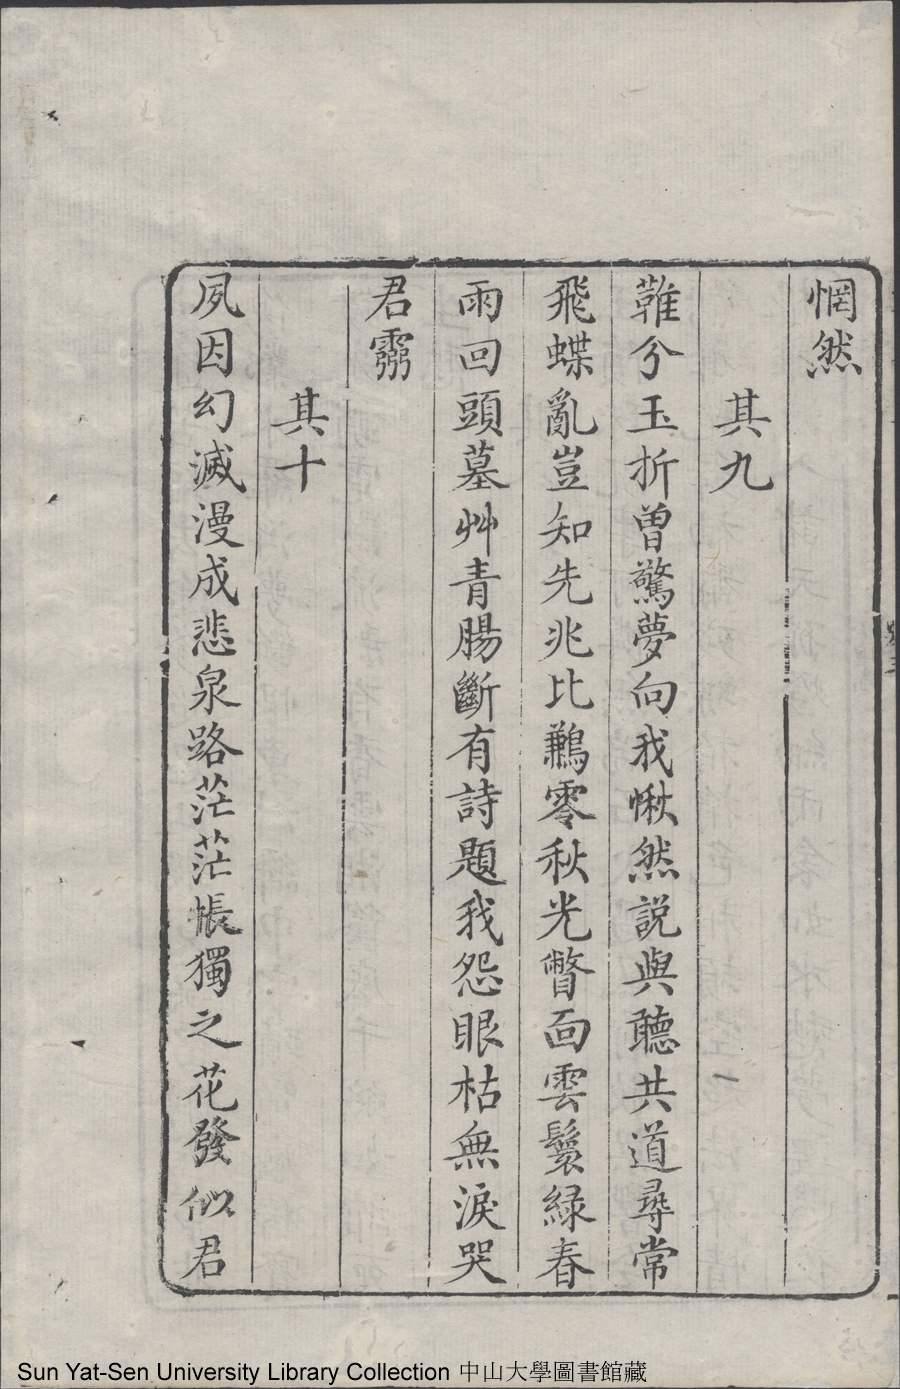 惘然
其九
兮玉折曾驚夢向我愀然說與聽共道尋常
飛蝶亂豈知先兆比鶼零秋光瞥面雲鬟綠春
雨回頭墓艸青腸斷有詩題我怨眼枯無淚哭
君霛
其十
夙因幻滅漫成悲泉路茫茫悵獨之花發似君
Sun Yat-Sen University Library Collection 中山大學圖書館藏